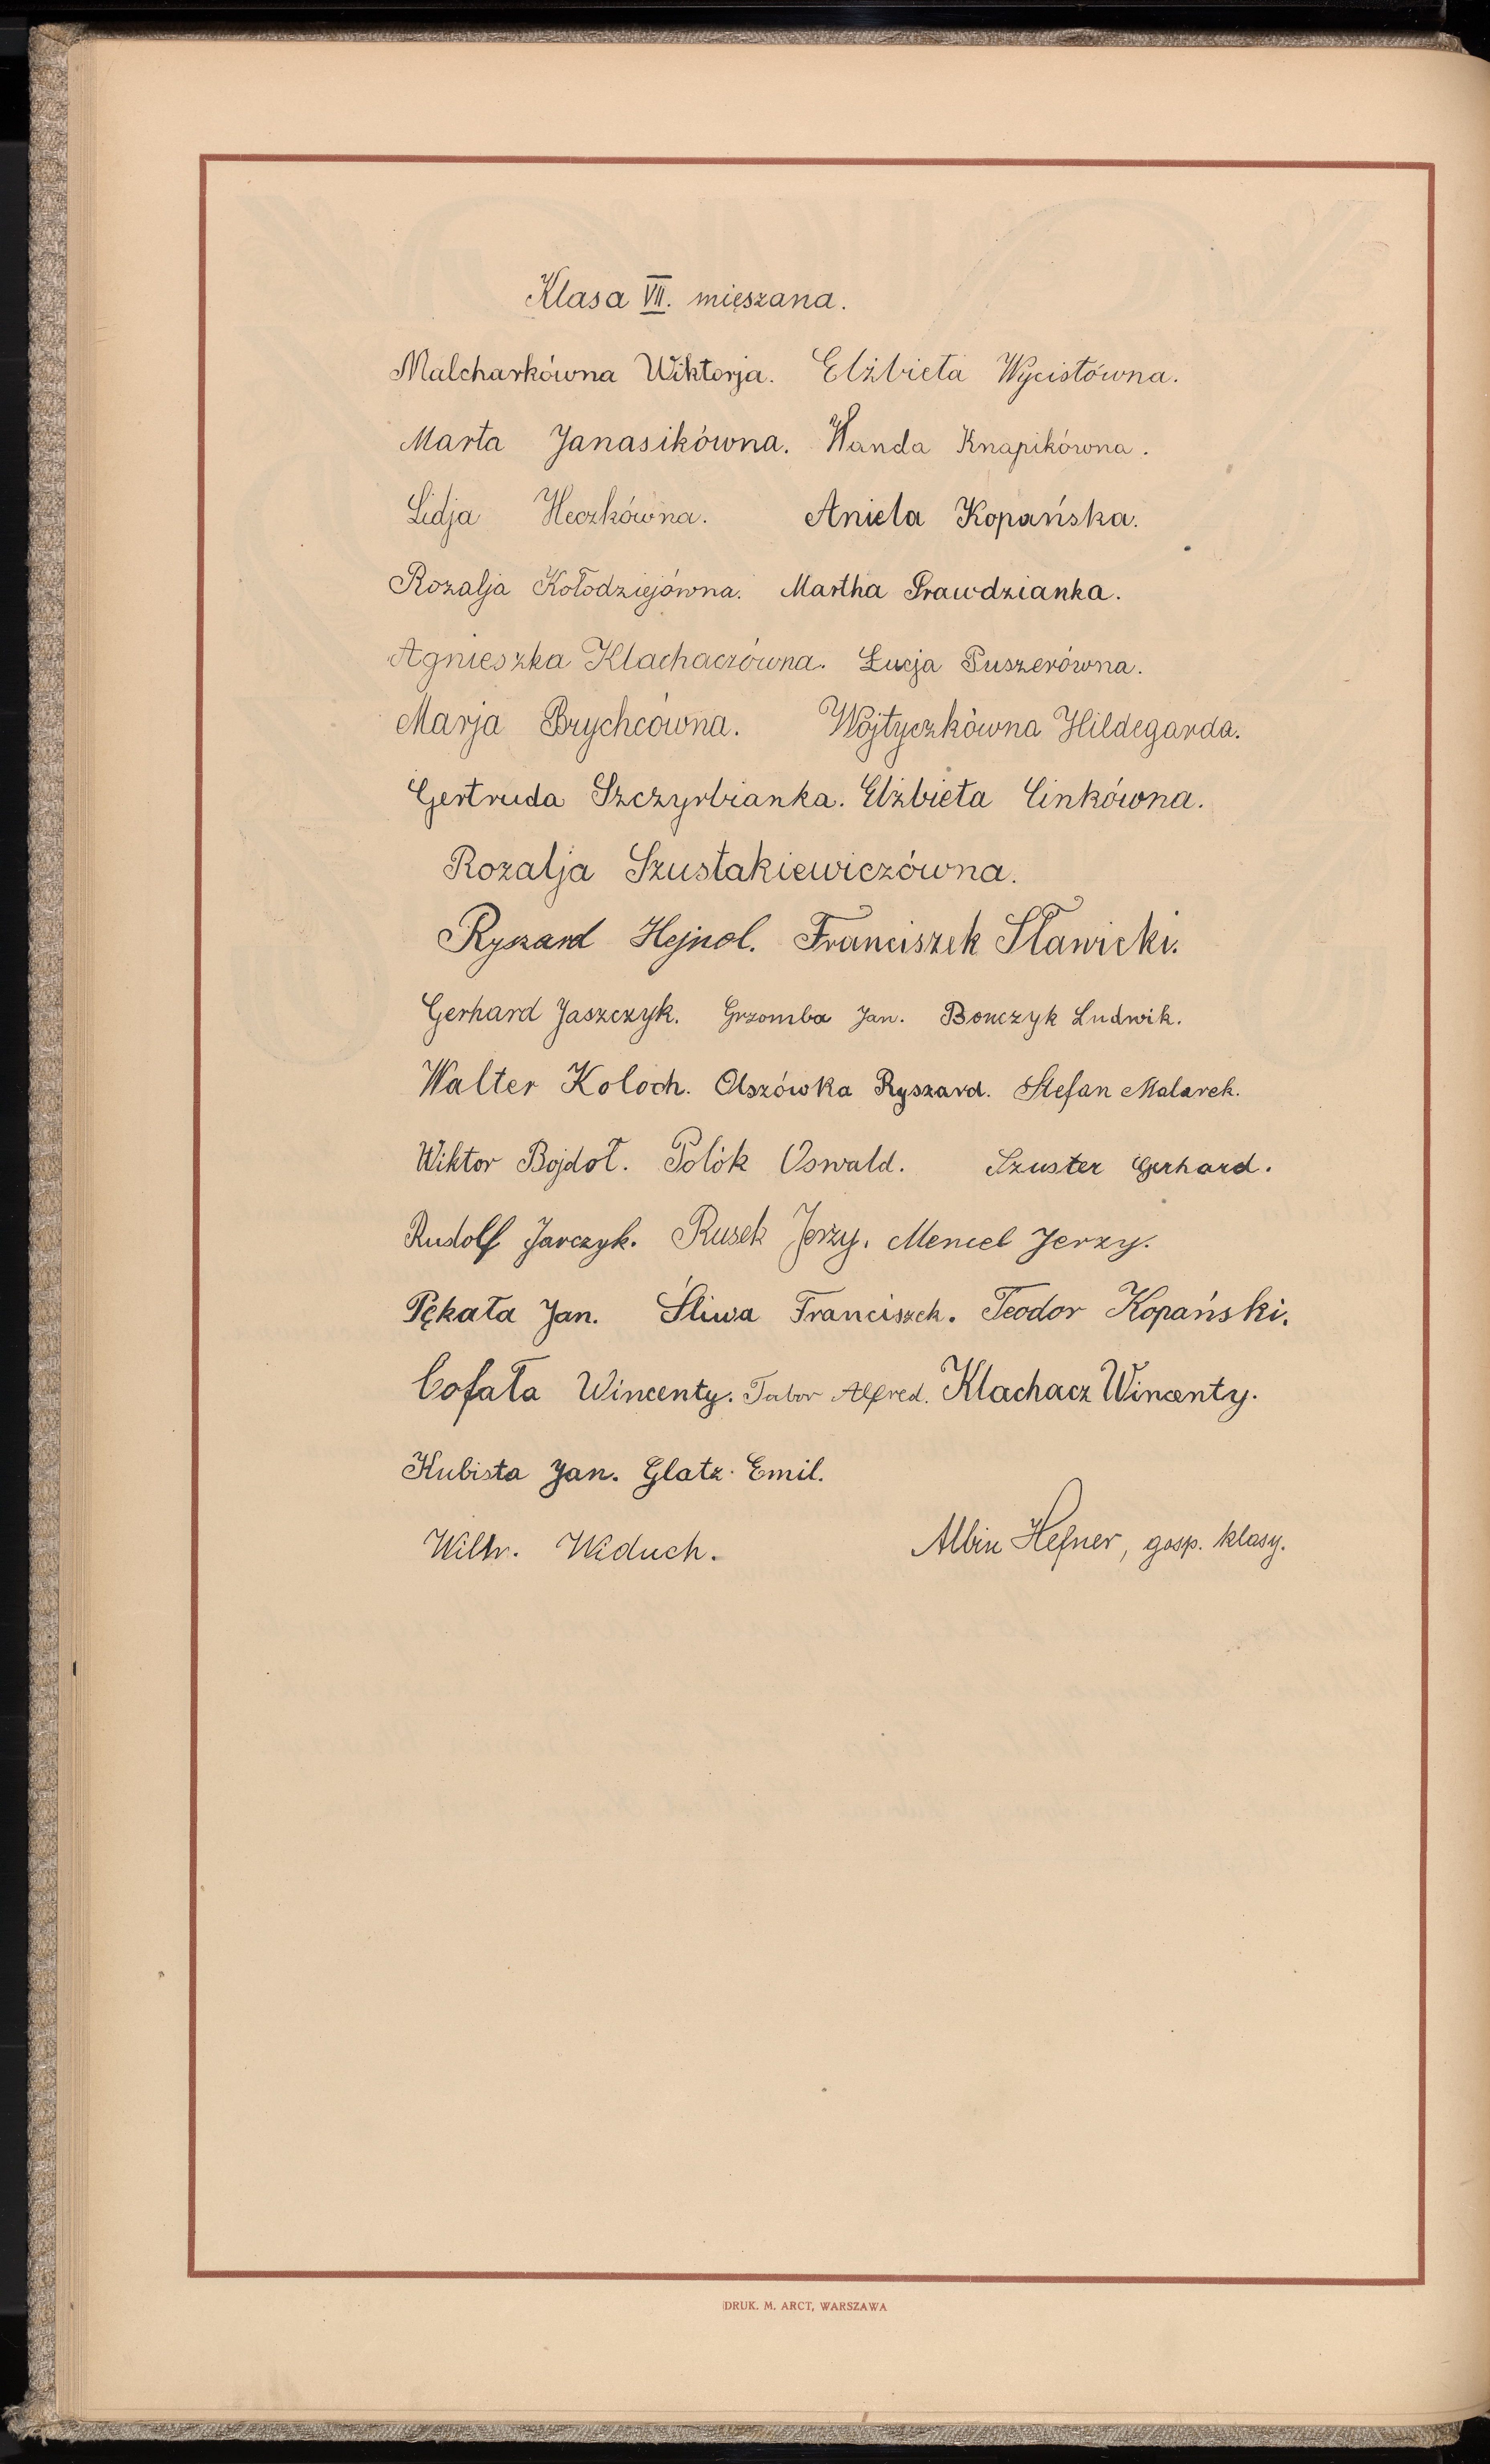 Klasa VII. mięszana.
Malcharkówna Wiktorja. Elżbieta Wycisłówna.
Marta Janasikówna. Wanda Knapikówna.
Lidja Heczkówna. Aniela Kopańska.
Rozalja Kołodziejówna. Martha Prawdzianka.
Agnieszka Klachaczówna. Łucja Puszerówna.
Marja Brychcówna. Wójtyczkówna Hildegarda.
Gertruda Szczyrbianka. Elżbieta Cinkówna.
Rozalja Szustakiewiczówna.
Ryszard Hejnol. Franciszek Sławicki.
Gerhard Jaszczyk. Grzomba Jan. Bonczyk Ludwik.
Walter Koloch. Olszówka Ryszard. Stefan Malarek.
Wiktor Bojdoł. Polók Oswald. Szuster Gerhard.
Rudolf Jarczyk. Rusek Jerzy. Mencel Jerzy.
Pękała Jan. Śliwa Franciszek. Teodor Kopański.
Cofała Wincenty. Tabor Alfred. Klachacz Wincenty.
Kubista Jan. Glatz Emil.
Widuch. Albin Hefner, gosp. klasy.
DRUK. M. ARCT, WARSZAWA